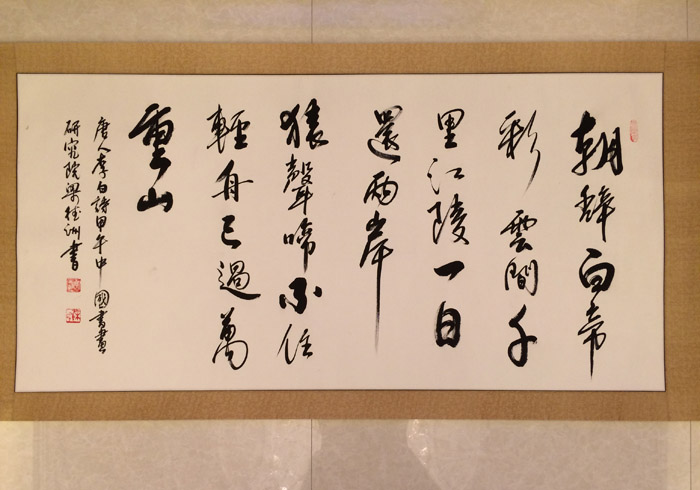 朝辭白帝
彩雲間千
里江陵一日
還兩岸
猿聲啼不住
輕舟已過萬
重山
唐人李白詩甲午中國書畫
研究院梁洲書